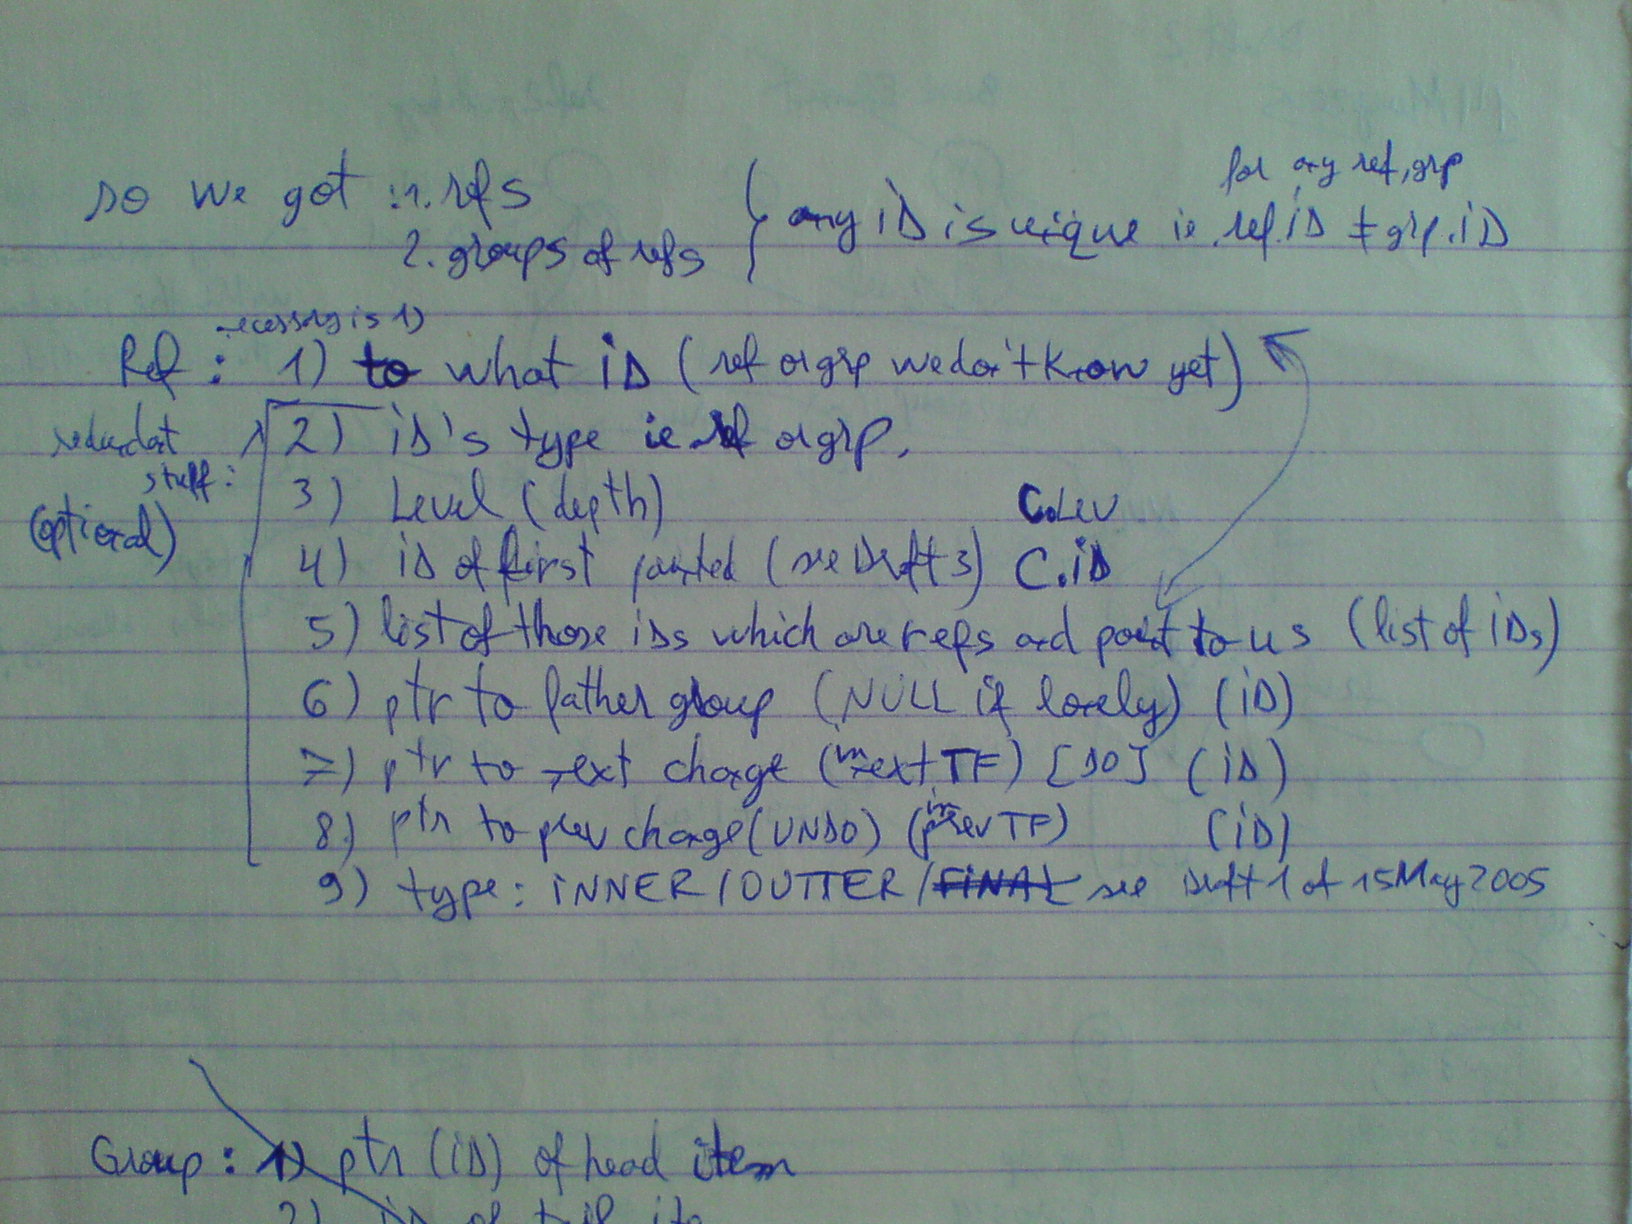 for any ref, grp
so we got : 1. refs } any iD is unique ie ref.iD ≠ grp.iD
2. groups of refs
necessary is 1)
Ref : 1) to what iD (ref or grp we don't know yet)
redundant stuff: (optional)
2) iD's type ie ref or grp.
3) Level (depth) C.Lev
4) iD of first pointed (see Draft 3) C.iD
5) list of those iDs which are refs and point to us (list of iDs)
6) ptr to father group (NULL if lonely) (iD)
7) ptr to next change (in next TF) [DO] (iD)
8) ptr to prev change (UNDO) (in prev TF) (iD)
9) type: iNNER / OUTTER / FiNAL see Draft 1 of 15 May 2005
Group : 1) ptr (iD) of head item
2) iD of tail